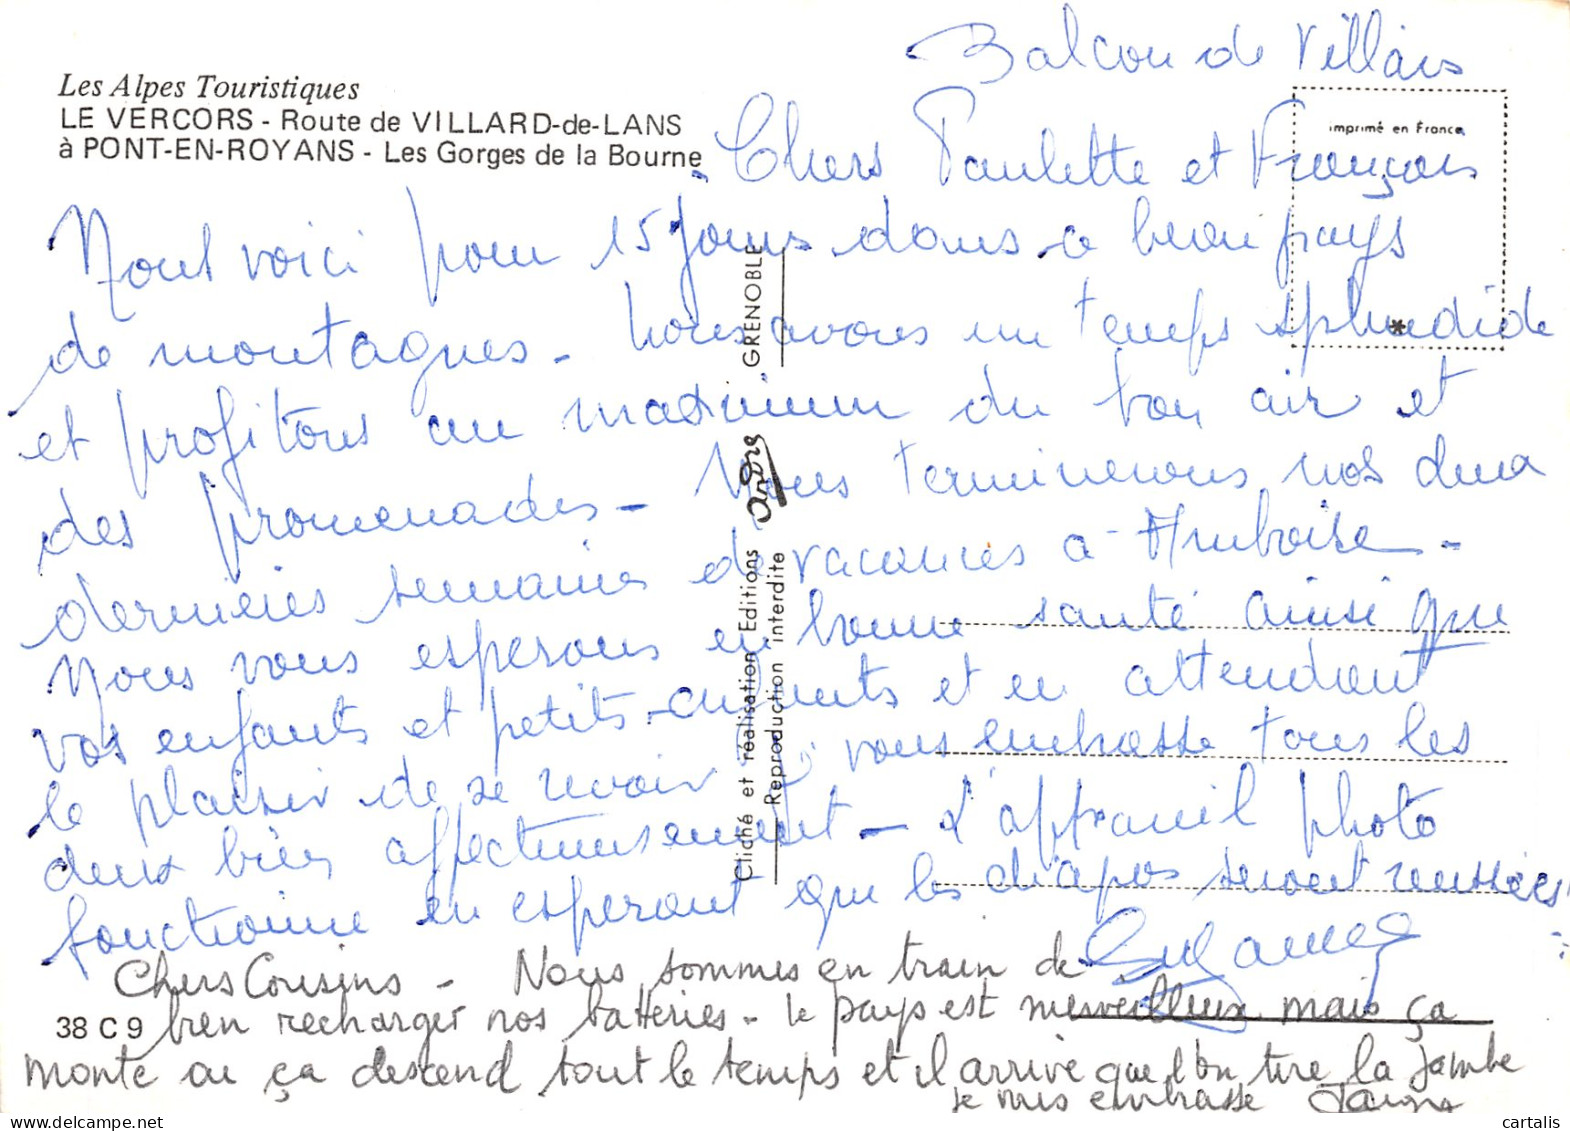 Les Alpes Touristiques
LE VERCORS - Route de VILLARD-de-LANS
à PONT-EN-ROYANS - Les Gorges de la Bourne
imprimé en France
Balcon de Villars
Chers Paulette et François
Nous voici pour 15 jours dans ce beau pays
de montagnes - nous avons un temps splendide
et profitons au maximum du bon air et
des promenades - Nous terminerons nos deux
dernières semaines de vacances à Amboise -
Nous vous espérons en bonne santé ainsi que
vos enfants et petits-enfants et en attendant
le plaisir de se revoir, vous embrasse tous les
deux bien affectueusement - L'appareil photo
fonctionne en espérant que les diapos seront réussies
Suzanne
Chers Cousins - Nous sommes en train de
bien recharger nos batteries - le pays est merveilleux mais ça
monte ou ça descend tout le temps et il arrive que l'on tire la jambe
Je vous embrasse
38 C 9
Cliché et réalisation Editions André GRENOBLE
Reproduction interdite
cartalis
delcampe.net